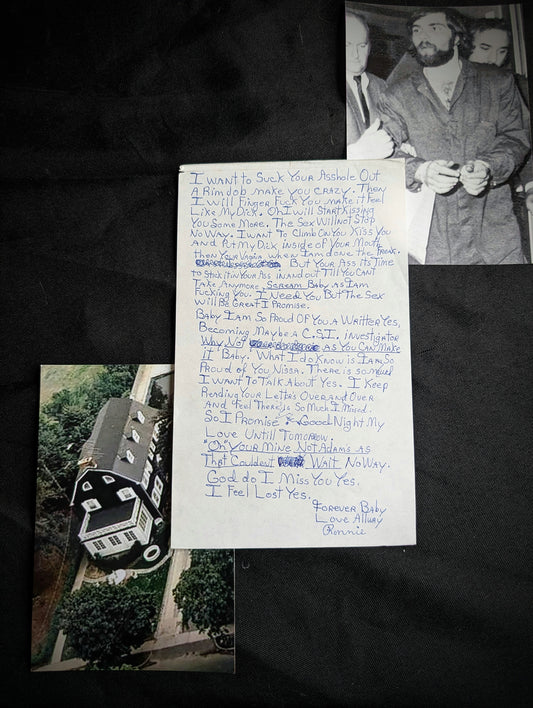 I want to Suck Your Asshole Out
A Rim Job make you crazy. Then
I will Finger Fuck You make it Feel
Like My Dick. Oh I will Start Kissing
You Some More. The Sex Will not Stop
No Way. I Want To Climb On You Kiss You
And Put My Dick inside of Your Mouth
then Your Vagin when I am done the
But Your Ass its Time
to Stick it in Your Ass in and out Till You Cant
Take Anymore. Scream Baby as I am
Fucking You. I Need You But The Sex
will Be Great I Promise.
Baby I am So Proud Of You A Waitter Yes,
Becoming Maybe a C.S.I. investigator
Why Not as You Can Make
it Baby. What I do Know is I am So
Proud of You Nissa. There is so much
I Want To Talk About Yes. I Keep
Reading Your Letters Over and Over
And Feel There is So Much I Missed.
So I Promise Good Night My
Love Untill Tomorrow.
"Oh" Your Mine Not Adams as
That Couldent Wait No Way.
God do I Miss You Yes.
I Feel Lost Yes.
Forever Baby
Love Allway
Ronnie